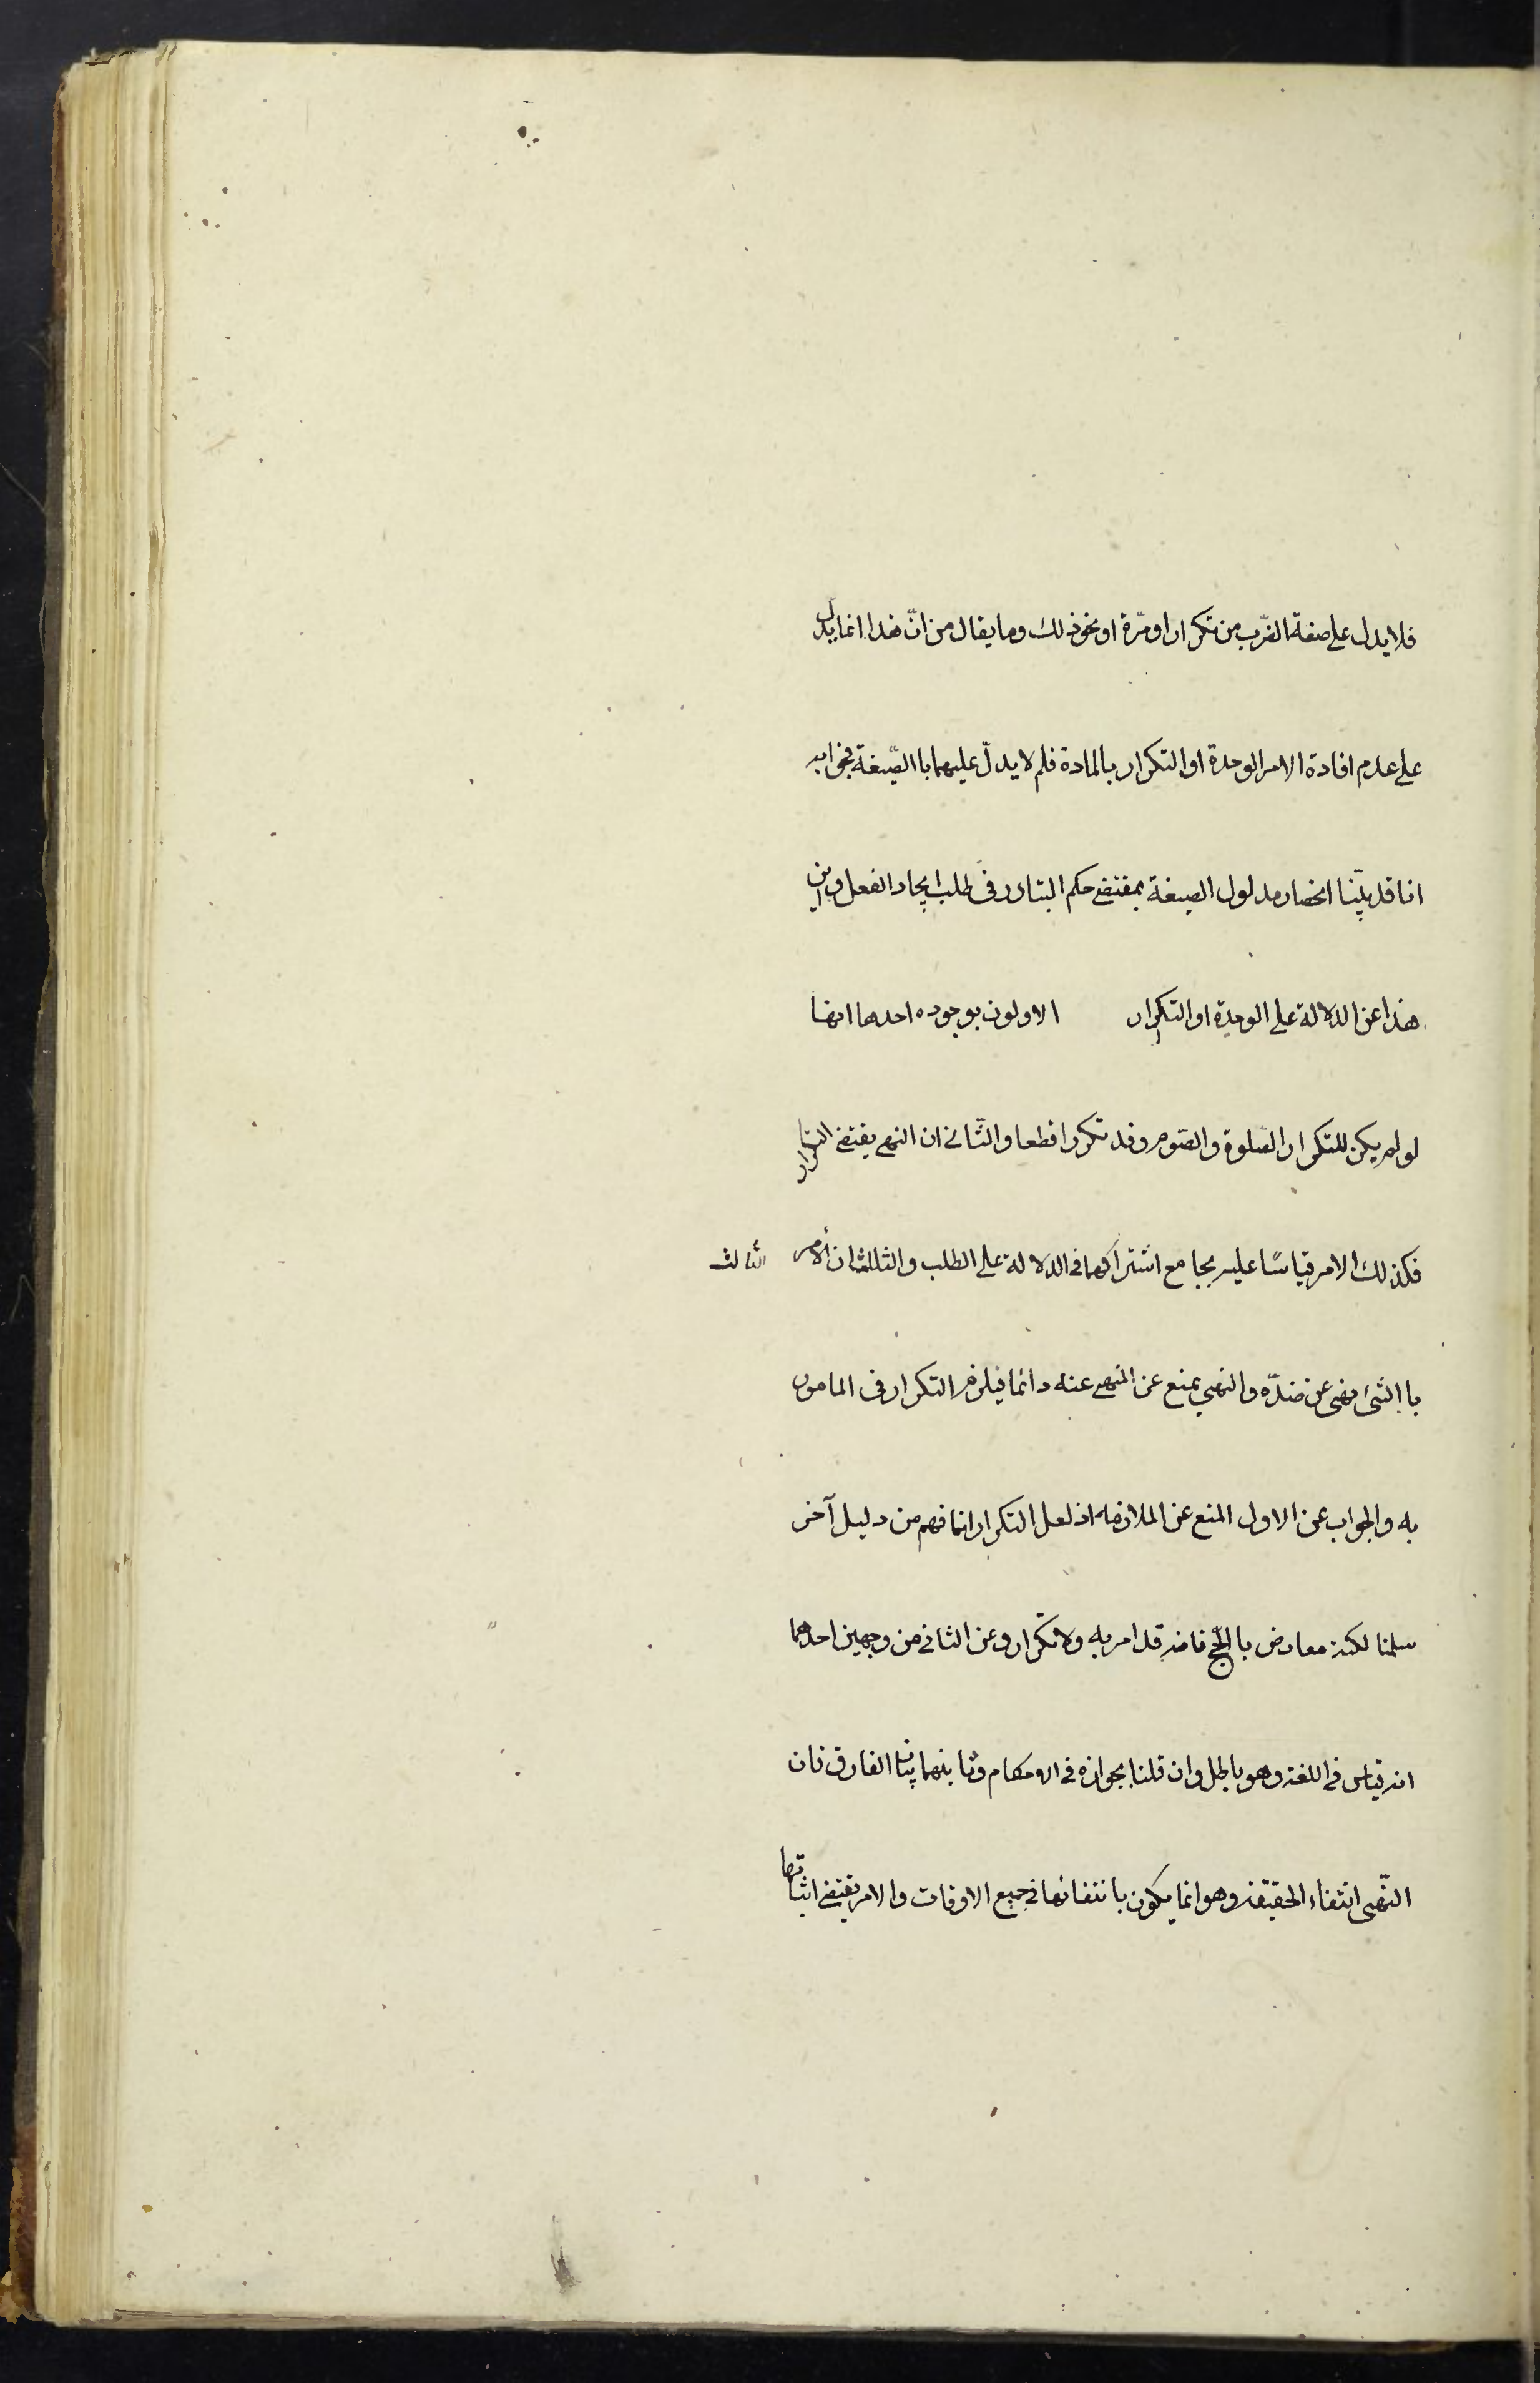 فلا يدل على صفة الضّرب من تكرار او مرّة او نحو ذلك وما يقال من انّ هذا انما يدلّ
على عدم افادة الامر الوحدة او التكرار بالمادة فلم لا يدلّ عليهما باالصّيغة فجوابه
انا قد بيّنا انحصار مدلول الصيغة بمقتضى حكم التبادر في طلب ايجاد الفعل واين
هذا عن الدلالة على الوحدة او التكرار الاولون بوجوده احدها انها
لو لم يكن للتكرار الصّلوة والصّوم وقد تكررا قطعا والثّاني ان النهى يقتضى التكرار
فكذلك الامر قياسًا عليه بجامع اشتراكهما في الدلالة على الطلب والثالث ان الامر الثالث
باالشئ نهى عن ضدّه والنهي يمنع عن المنهى عنه دائما فيلزم التكرار في المامور
به والجواب عن الاول المنع عن الملازمه اذ لعل التكرار انما فهم من دليل آخر
سلمنا لكنه معارض باالحجّ فانه قد امر به ولا تكرار وعن الثاني من وجهين احدهما
انه قياس في اللغة وهو باطل وان قلنا بجوازه في الاحكام وثانيهما بيان الفارق فان
النّهى انتفاء الحقيقة وهو انما يكون بانتفائها في جميع الاوقات والامر يقتضى اثباتها